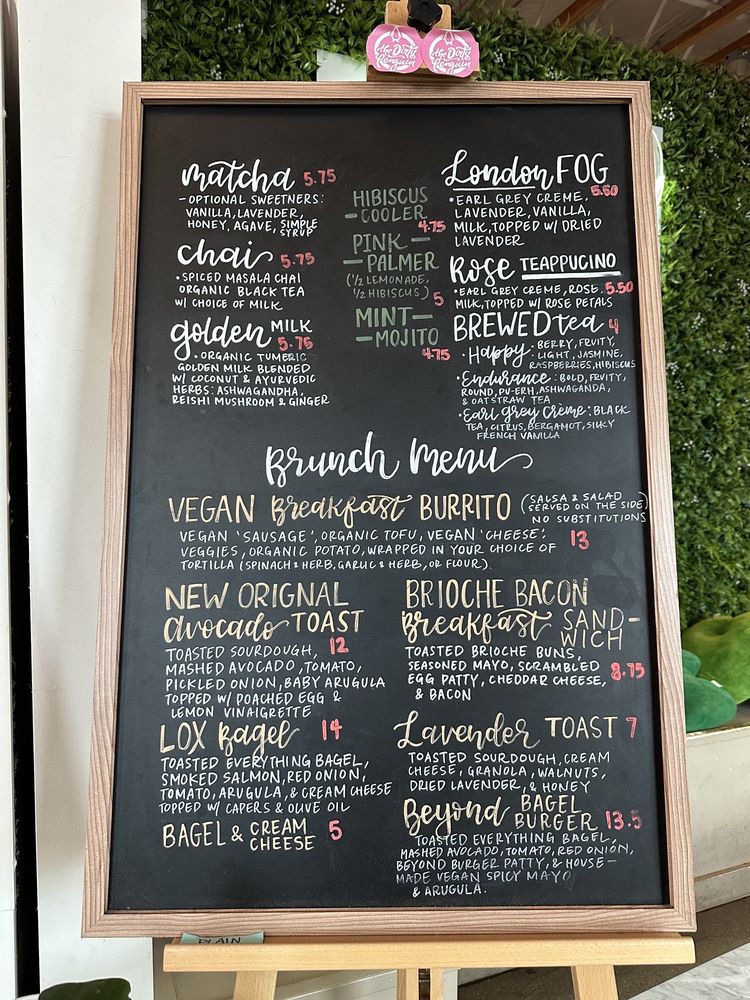 The Dirty Penguin
The Dirty Penguin
matcha 5.75
- OPTIONAL SWEETNERS:
VANILLA, LAVENDER,
HONEY, AGAVE, SIMPLE
SYRUP
chai 5.75
• SPICED MASALA CHAI
ORGANIC BLACK TEA
W/ CHOICE OF MILK
golden MILK
5.75
• ORGANIC TUMERIC
GOLDEN MILK BLENDED
W/ COCONUT & AYURVEDIC
HERBS: ASHWAGANDHA,
REISHI MUSHROOM & GINGER
HIBISCUS
- COOLER
4.75
PINK -
- PALMER
(1/2 LEMONADE,
1/2 HIBISCUS) 5
MINT -
- MOJITO
4.75
London FOG
5.50
• EARL GREY CREME,
LAVENDER, VANILLA,
MILK, TOPPED W/ DRIED
LAVENDER
Rose TEAPPUCINO
• EARL GREY CREME, ROSE, 5.50
MILK, TOPPED W/ ROSE PETALS
BREWED tea 4
• Happy: BERRY, FRUITY,
LIGHT, JASMINE,
RASPBERRIES, HIBISCUS
• Endurance: BOLD, FRUITY,
ROUND, PU-ERH, ASHWAGANDA,
& OATSTRAW TEA
• Earl Grey Crème: BLACK
TEA, CITRUS, BERGAMOT, SILKY
FRENCH VANILLA
Brunch Menu
VEGAN Breakfast BURRITO (SALSA & SALAD
SERVED ON THE SIDE)
NO SUBSTITUTIONS
VEGAN 'SAUSAGE', ORGANIC TOFU, VEGAN 'CHEESE', 13
VEGGIES, ORGANIC POTATO, WRAPPED IN YOUR CHOICE OF
TORTILLA (SPINACH & HERB, GARLIC & HERB, OR FLOUR).
NEW ORIGNAL
Avocado TOAST
TOASTED SOURDOUGH, 12
MASHED AVOCADO, TOMATO,
PICKLED ONION, BABY ARUGULA
TOPPED W/ POACHED EGG &
LEMON VINAIGRETTE
LOX Bagel 14
TOASTED EVERYTHING BAGEL,
SMOKED SALMON, RED ONION,
TOMATO, ARUGULA, & CREAM CHEESE
TOPPED W/ CAPERS & OLIVE OIL
BAGEL & CREAM
CHEESE 5
BRIOCHE BACON
Breakfast SAND-
WICH
TOASTED BRIOCHE BUNS,
SEASONED MAYO, SCRAMBLED
EGG PATTY, CHEDDAR CHEESE, 8.75
& BACON
Lavender TOAST 7
TOASTED SOURDOUGH, CREAM
CHEESE, GRANOLA, WALNUTS,
DRIED LAVENDER, & HONEY
Beyond BAGEL
BURGER 13.5
TOASTED EVERYTHING BAGEL,
MASHED AVOCADO, TOMATO, RED ONION,
BEYOND BURGER PATTY, & HOUSE-
MADE VEGAN SPICY MAYO
& ARUGULA.
PLAIN